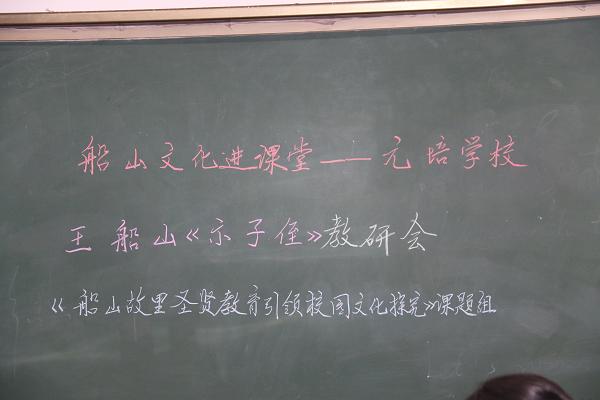 船山文化进课堂——元培学校
王船山《示子侄》教研会
《船山故里圣贤教育引领校园文化探究》课题组